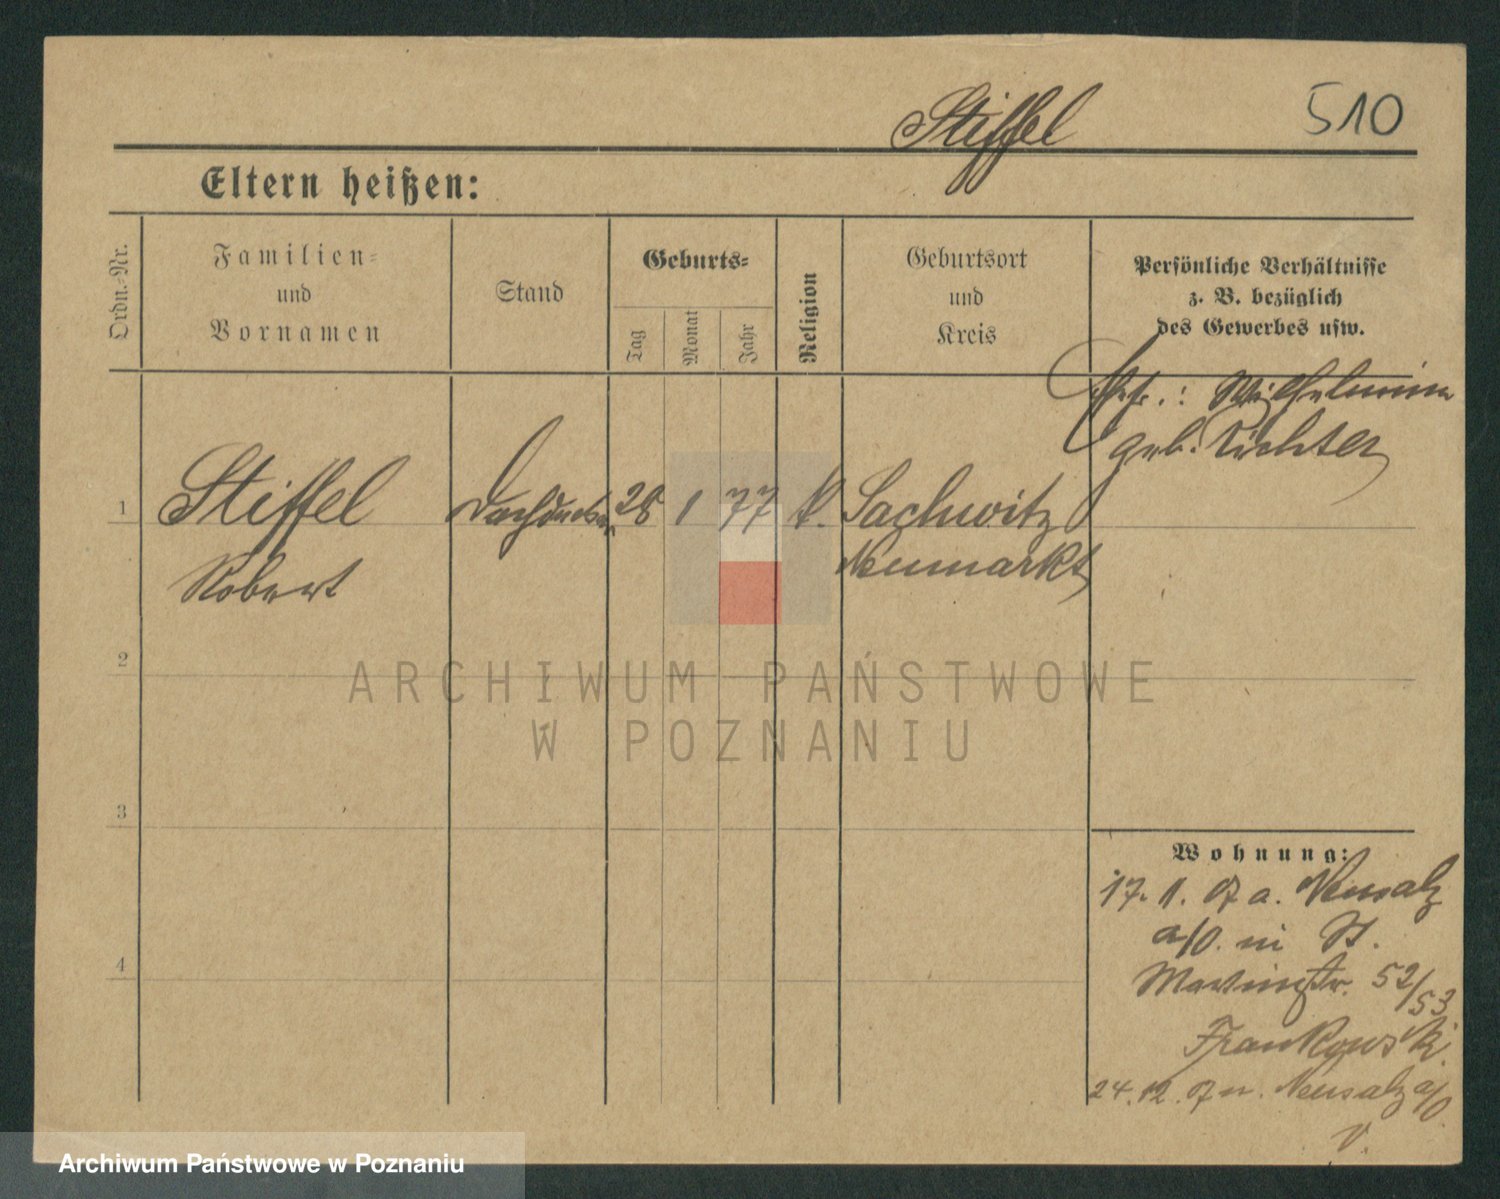 Stiffel
510
Eltern heißen:
Ordn.-Nr.
Familien-
und
Vornamen
Stand
Geburts-
Tag
Monat
Jahr
Religion
Geburtsort
und
Kreis
Persönliche Verhältnisse
z. B. bezüglich
des Gewerbes usw.
Ehefr.: Wilhelmine
geb. Richter
1
Stiffel
Robert
Dachdecker
28
1
77
k.
Sachwitz
Neumarkt
2
3
4
Wohnung:
17. 1. 07 a. Neusalz
a/O. in St.
Martinstr. 52/53
Frankowski.
24. 12. 07 n. Neusalz a/O
V.
ARCHIWUM PAŃSTWOWE
W POZNANIU
Archiwum Państwowe w Poznaniu